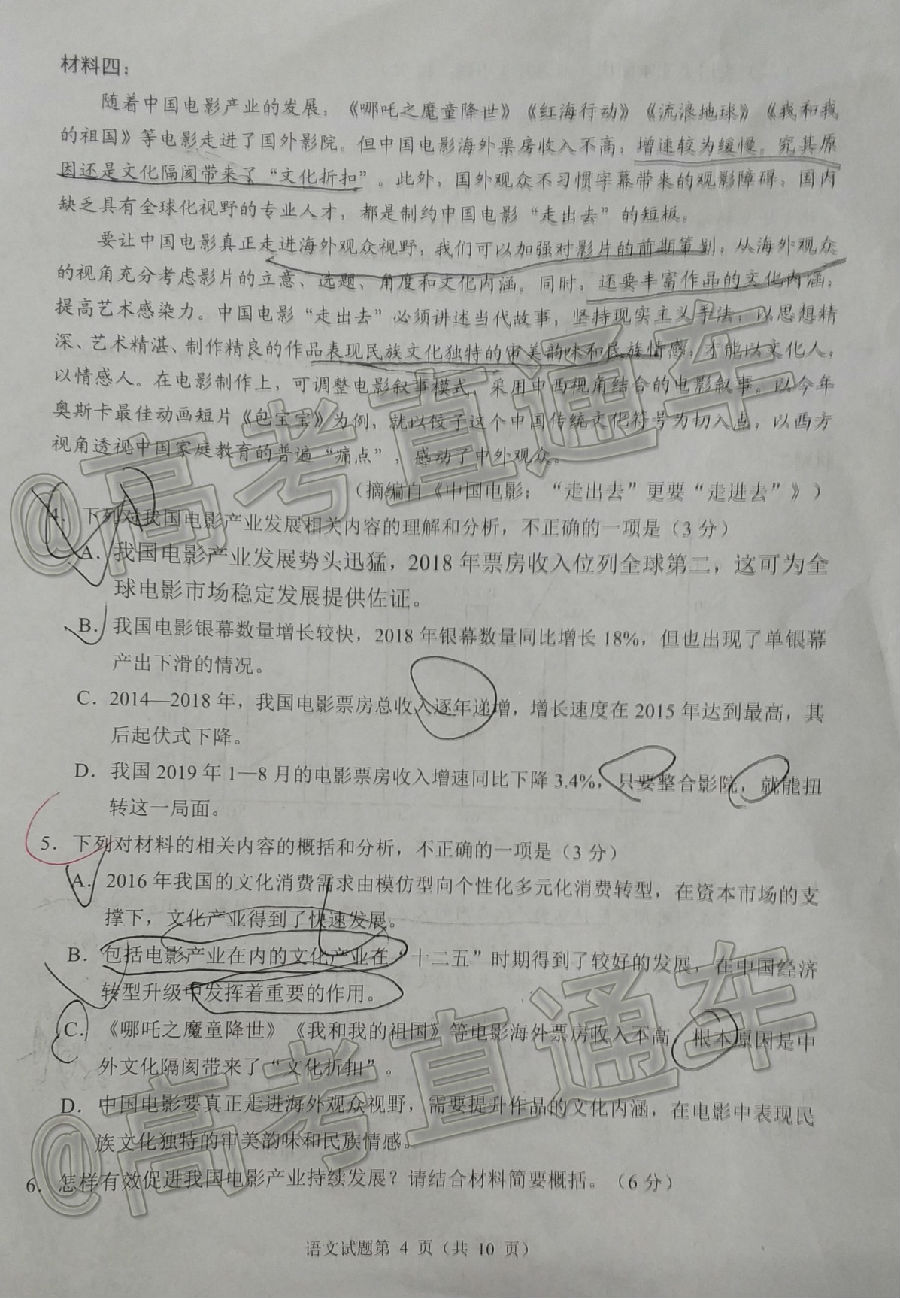 材料四：
随着中国电影产业的发展，《哪吒之魔童降世》《红海行动》《流浪地球》《我和我
的祖国》等电影走进了国外影院。但中国电影海外票房收入不高，增速较为缓慢。究其原
因还是文化隔阂带来了“文化折扣”。此外，国外观众不习惯字幕带来的观影障碍，国内
缺乏具有全球化视野的专业人才，都是制约中国电影“走出去”的短板。
要让中国电影真正走进海外观众视野，我们可以加强对影片的前期策划，从海外观众
的视角充分考虑影片的立意、选题、角度和文化内涵。同时，还要丰富作品的文化内涵，
提高艺术感染力。中国电影“走出去”必须讲述当代故事，坚持现实主义手法，以思想精
深、艺术精湛、制作精良的作品表现民族文化独特的审美韵味和民族情感，才能以文化人，
以情感人。在电影制作上，可调整电影叙事模式，采用中西视角结合的电影叙事。以今年
奥斯卡最佳动画短片《包宝宝》为例，就以饺子这个中国传统文化符号为切入点，以西方
视角透视中国家庭教育的普遍“痛点”，感动了中外观众。
（摘编自《中国电影：“走出去”更要“走进去”》）
4．下列对我国电影产业发展相关内容的理解和分析，不正确的一项是（3 分）
A．我国电影产业发展势头迅猛，2018 年票房收入位列全球第二，这可为全
球电影市场稳定发展提供佐证。
B．我国电影银幕数量增长较快，2018 年银幕数量同比增长 18%，但也出现了单银幕
产出下滑的情况。
C．2014—2018 年，我国电影票房总收入逐年递增，增长速度在 2015 年达到最高，其
后起伏式下降。
D．我国 2019 年 1—8 月的电影票房收入增速同比下降 3.4%，只要整合影院，就能扭
转这一局面。
5．下列对材料的相关内容的概括和分析，不正确的一项是（3 分）
A．2016 年我国的文化消费需求由模仿型向个性化多元化消费转型，在资本市场的支
撑下，文化产业得到了快速发展。
B．包括电影产业在内的文化产业在“十二五”时期得到了较好的发展，在中国经济
转型升级中发挥着重要的作用。
C．《哪吒之魔童降世》《我和我的祖国》等电影海外票房收入不高，根本原因是中
外文化隔阂带来了“文化折扣”。
D．中国电影要真正走进海外观众视野，需要提升作品的文化内涵，在电影中表现民
族文化独特的审美韵味和民族情感。
6．怎样有效促进我国电影产业持续发展？请结合材料简要概括。（6 分）
语文试题第 4 页（共 10 页）
@高考直通车
@高考直通车